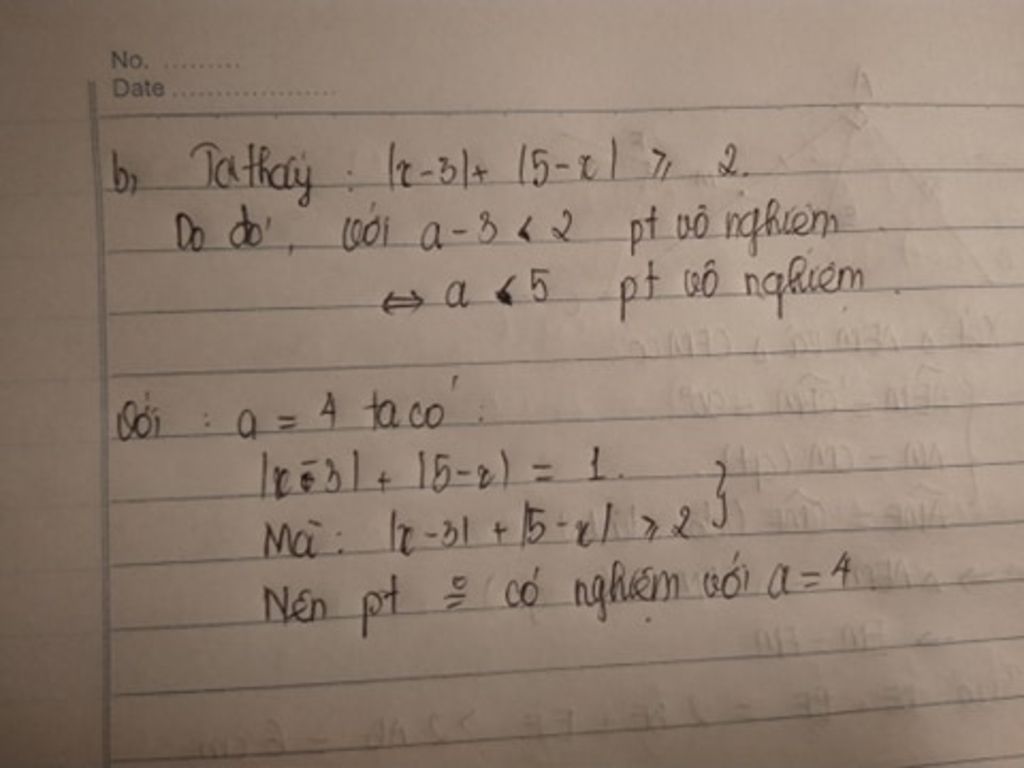 No. .........
Date ..................
b, Ta thấy : |x-3| + |5-x| ≥ 2.
Do đó, với a-3 < 2 pt vô nghiệm
⇔ a < 5 pt vô nghiệm.
Với : a = 4 ta có :
|x-3| + |5-x| = 1.
Mà : |x-3| + |5-x| ≥ 2 }
Nên pt có nghiệm với a = 4